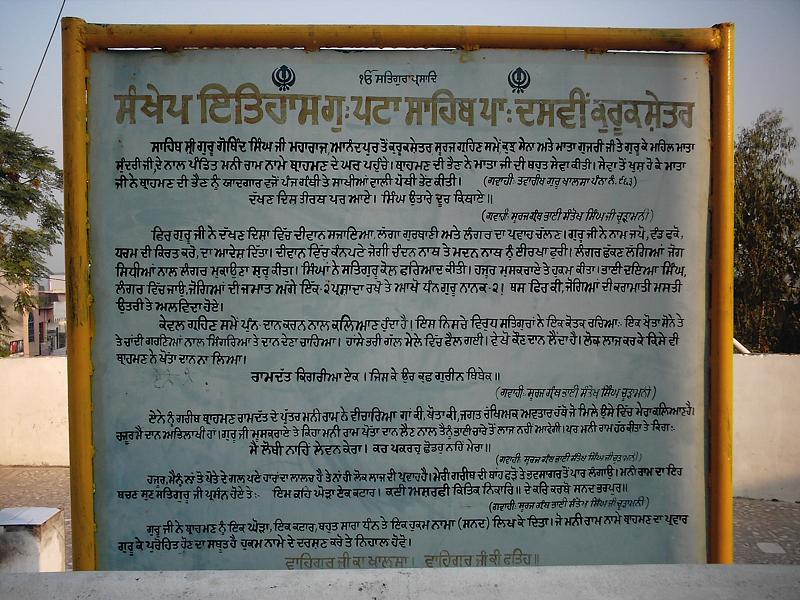 ੴ ਸਤਿਗੁਰਪ੍ਰਸਾਦਿ
ਸੰਖੇਪ ਇਤਿਹਾਸ ਗੁ: ਪਟਾ ਸਾਹਿਬ ਪਾ: ਦਸਵੀਂ ਕੁਰੂਕਸ਼ੇਤਰ
ਸਾਹਿਬ ਸ੍ਰੀ ਗੁਰੂ ਗੋਬਿੰਦ ਸਿੰਘ ਜੀ ਮਹਾਰਾਜ ਆਨੰਦਪੁਰ ਤੋਂ ਕੁਰੂਕਸ਼ੇਤਰ ਸੂਰਜ ਗਹਿਣ ਸਮੇਂ ਕੁਝ ਸੈਨਾ ਅਤੇ ਮਾਤਾ ਗੁਜਰੀ ਜੀ ਤੇ ਗੁਰੂ ਕੇ ਮਹਿਲ ਮਾਤਾ
ਸੁੰਦਰੀ ਜੀ, ਦੇ ਨਾਲ ਪੰਡਿਤ ਮਨੀ ਰਾਮ ਨਾਮੇ ਬ੍ਰਾਹਮਣ ਦੇ ਘਰ ਪਹੁੰਚੇ। ਬ੍ਰਾਹਮਣ ਦੀ ਭੈਣ ਨੇ ਮਾਤਾ ਜੀ ਦੀ ਬਹੁਤ ਸੇਵਾ ਕੀਤੀ। ਸੇਵਾ ਤੋਂ ਖੁਸ਼ ਹੋ ਕੇ ਮਾਤਾ
ਜੀ ਨੇ ਬ੍ਰਾਹਮਣ ਦੀ ਭੈਣ ਨੂੰ ਯਾਦਗਾਰ ਵਜੋਂ ਪੰਜ ਗ੍ਰੰਥੀ ਤੇ ਸਾਖੀਆਂ ਵਾਲੀ ਪੋਥੀ ਭੇਟ ਕੀਤੀ। (ਗਵਾਹੀ: ਤਵਾਰੀਖ ਗੁਰੂ ਖਾਲਸਾ ਪੰਨਾ ਨੰ.
ਦੱਖਣ ਦਿਸ ਤੀਰਥ ਪਰ ਆਏ। ਸਿੰਘ ਉਤਾਰੇ ਦੂਰ ਕਿਥਾਏ॥
(ਗਵਾਹੀ: ਸੂਰਜ ਗ੍ਰੰਥ ਭਾਈ ਸੰਤੋਖ ਸਿੰਘ ਜੀ ਚੂੜਾਮਨੀ)
ਫਿਰ ਗੁਰੂ ਜੀ ਨੇ ਦੱਖਣ ਦਿਸ਼ਾ ਵਿੱਚ ਦੀਵਾਨ ਸਜਾਇਆ, ਲੱਗਾ ਗੁਰਬਾਣੀ ਅਤੇ ਲੰਗਰ ਦਾ ਪ੍ਰਵਾਹ ਚੱਲਣ। ਗੁਰੂ ਜੀ ਨੇ ਨਾਮ ਜਪੋ, ਵੰਡ ਛਕੋ,
ਧਰਮ ਦੀ ਕਿਰਤ ਕਰੋ, ਦਾ ਆਦੇਸ਼ ਦਿੱਤਾ। ਦੀਵਾਨ ਵਿੱਚ ਕੰਨਪਟੇ ਜੋਗੀ ਚੰਦਨ ਨਾਥ ਤੇ ਮਦਨ ਨਾਥ ਨੂੰ ਈਰਖਾ ਫੁਰੀ। ਲੰਗਰ ਛਕਣ ਲੱਗਿਆਂ ਜੋਗ
ਸਿਧੀਆਂ ਨਾਲ ਲੰਗਰ ਮੁਕਾਉਣਾ ਸ਼ੁਰੂ ਕੀਤਾ। ਸਿੰਘਾਂ ਨੇ ਸਤਿਗੁਰੂ ਕੋਲ ਫਰਿਆਦ ਕੀਤੀ। ਹਜੂਰ ਮੁਸਕਰਾਏ ਤੇ ਹੁਕਮ ਕੀਤਾ। ਭਾਈ ਦਇਆ ਸਿੰਘ,
ਲੰਗਰ ਵਿੱਚ ਜਾਉ, ਜੋਗੀਆਂ ਦੀ ਜਮਾਤ ਅੱਗੇ ਇੱਕ ੨ ਪ੍ਰਸ਼ਾਦਾ ਰਖੋ ਤੇ ਆਖੋ ਧੰਨ ਗੁਰੂ ਨਾਨਕ-੨! ਬਸ ਫਿਰ ਕੀ, ਜੋਗੀਆਂ ਦੀ ਕਰਾਮਾਤੀ ਮਸਤੀ
ਉਤਰੀ ਤੇ ਅਲਵਿਦਾ ਹੋਏ।
ਕੇਵਲ ਗਹਿਣ ਸਮੇਂ ਪੁੰਨ-ਦਾਨ ਕਰਨ ਨਾਲ ਕਲਿਆਣ ਹੁੰਦਾ ਹੈ। ਇਸ ਨਿਸਚੇ ਵਿਰੁਧ ਸਤਿਗੁਰਾਂ ਨੇ ਇਕ ਕੌਤਕ ਰਚਿਆ: ਇਕ ਖੋਤਾ ਸੋਨੇ ਤੇ
ਤੇ ਚਾਂਦੀ ਗਹਣਿਆਂ ਨਾਲ ਸ਼ਿੰਗਾਰਿਆ ਤੇ ਦਾਨ ਦੇਣਾ ਚਾਹਿਆ। ਹਾਸੇ ਭਰੀ ਗੱਲ ਮੇਲੇ ਵਿੱਚ ਫੈਲ ਗਈ। ਵੇਖੋ ਕੌਣ ਦਾਨ ਲੈਂਦਾ ਹੈ। ਲੋਕ ਲਾਜ ਕਰਕੇ ਕਿਸੇ ਵੀ
ਬ੍ਰਾਹਮਣ ਨੇ ਖੋਤਾ ਦਾਨ ਨਾ ਲਿਆ।
ਰਾਮਦੱਤ ਕਿਗਰੀਆ ਏਕ। ਜਿਸ ਕੇ ਉਰ ਕੁਛ ਗੁਰੀਨ ਬਿਬੇਕ॥
(ਗਵਾਹੀ: ਸੂਰਜ ਗ੍ਰੰਥ ਭਾਈ ਸੰਤੋਖ ਸਿੰਘ ਚੂੜਾਮਨੀ)
ਏਨੇ ਨੂੰ ਗਰੀਬ ਬ੍ਰਾਹਮਣ ਰਾਮਦੱਤ ਦੇ ਪੁੱਤਰ ਮਨੀ ਰਾਮ ਨੇ ਵੀਚਾਰਿਆ ਗਾਂ ਕੀ, ਖੋਤਾ ਕੀ, ਜਗਤ ਰੱਖਿਅਕ ਅਵਤਾਰ ਹੱਥੋਂ ਜੋ ਮਿਲੇ ਉਸੇ ਵਿੱਚ ਮੇਰਾ ਕਲਿਆਣ ਹੈ।
ਹਜ਼ੂਰ ਮੈਂ ਦਾਨ ਅਭਿਲਾਖੀ ਹਾਂ। ਗੁਰੂ ਜੀ ਮੁਸਕਰਾਏ ਤੇ ਕਿਹਾ ਮਨੀ ਰਾਮ ਖੋਤਾ ਦਾਨ ਲੈਣ ਨਾਲ ਤੈਨੂੰ ਭਾਈਚਾਰੇ ਤੋਂ ਲਾਜ ਨਹੀਂ ਆਵੇਗੀ। ਪਰ ਮਨੀ ਰਾਮ ਹੱਠ ਕੀਤਾ ਤੇ ਕਿਹਾ:
ਮੈਂ ਲੋਭੀ ਨਾਹਿੰ ਲੇਵਨ ਕੇਰਾ। ਕਰ ਪਕਰਹੁ ਛੋਰਹੁ ਨਹਿੰ ਮੇਰਾ॥
(ਗਵਾਹੀ: ਸੂਰਜ ਗ੍ਰੰਥ ਭਾਈ ਸੰਤੋਖ ਸਿੰਘ ਜੀ ਚੂੜਾਮਨੀ)
ਹਜੂਰ, ਮੈਨੂੰ ਨਾਂ ਤੇ ਖੋਤੇ ਦੇ ਗਲ ਪਏ ਹਾਰਾਂ ਦਾ ਲਾਲਚ ਹੈ ਤੇ ਨਾਂ ਹੀ ਲੋਕ ਲਾਜ ਦੀ ਪ੍ਰਵਾਹ ਹੈ। ਮੇਰੀ ਗਰੀਬ ਦੀ ਬਾਂਹ ਫੜੋ ਤੇ ਭਵਸਾਗਰ ਤੋਂ ਪਾਰ ਲੰਗਾਉ। ਮਨੀ ਰਾਮ ਦਾ ਇਹ
ਬਚਣ ਸੁਣ ਸਤਿਗੁਰੂ ਜੀ ਪ੍ਰਸੰਨ ਹੋਏ ਤੇ:- ਇਮ ਕਹਿ ਘੋੜਾ ਏਕ ਕਟਾਰ। ਕਈ ਅਸ਼ਰਫੀ ਕਿਤਿਕ ਨਿਕਾਰਿ॥ ਦੇ ਕਰਿ ਕਰਖੋ ਸਨਦ ਭਰਪੂਰ॥
(ਗਵਾਹੀ: ਸੂਰਜ ਗ੍ਰੰਥ ਭਾਈ ਸੰਤੋਖ ਸਿੰਘ ਜੀ ਚੂੜਾਮਨੀ)
ਗੁਰੂ ਜੀ ਨੇ ਬ੍ਰਾਹਮਣ ਨੂੰ ਇਕ ਘੋੜਾ, ਇਕ ਕਟਾਰ, ਬਹੁਤ ਸਾਰਾ ਧੰਨ ਤੇ ਇਕ ਹੁਕਮ ਨਾਮਾ (ਸਨਦ) ਲਿਖ ਕੇ ਦਿਤਾ। ਜੋ ਮਨੀ ਰਾਮ ਨਾਮੇ ਬ੍ਰਾਹਮਣ ਦਾ ਪ੍ਰਵਾਰ
ਗੁਰੂ ਕੇ ਪ੍ਰੋਹਿਤ ਹੋਣ ਦਾ ਸਬੂਤ ਹੈ ਹੁਕਮ ਨਾਮੇ ਦੇ ਦਰਸ਼ਣ ਕਰੋ ਤੇ ਨਿਹਾਲ ਹੋਵੋ।
ਵਾਹਿਗੁਰੂ ਜੀ ਕਾ ਖਾਲਸਾ। ਵਾਹਿਗੁਰੂ ਜੀ ਕੀ ਫਤਿਹ॥